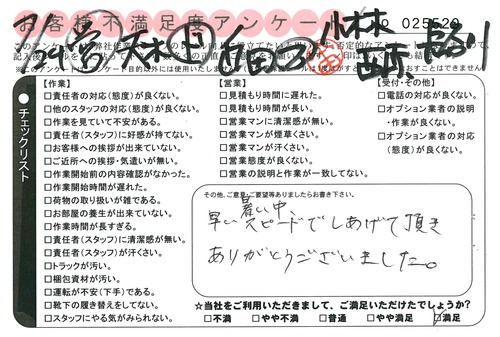 お客様不満足度アンケート
No 025520
チェックリスト
【作業】
□責任者の対応(態度)が良くない。
□他のスタッフの対応(態度)が良くない。
□作業を見ていて不安がある。
□責任者(スタッフ)に好感が持てない。
□お客様への挨拶が出来ていない。
□ご近所への挨拶・気遣いが無い。
□作業開始前の内容確認がなかった。
□作業開始時間が遅れた。
□荷物の取り扱いが雑である。
□お部屋の養生が出来ていない。
□作業時間が長すぎる。
□責任者(スタッフ)に清潔感が無い。
□責任者(スタッフ)が汗くさい。
□トラックが汚い。
□梱包資材が汚い。
□運転が不安(下手)である。
□靴下の履き替えをしてない。
□スタッフにやる気がみられない。
【営業】
□見積もり時間に遅れた。
□見積もり時間が長い。
□営業マンに清潔感が無い。
□営業マンが煙草くさい。
□営業マンが汗くさい。
□営業態度が良くない。
□営業の説明と作業が一致してない。
【受付・その他】
□電話の対応が良くない。
□オプション業者の説明
・作業が良くない。
□オプション業者の対応
(態度)が良くない。
その他、ご意見・ご要望等ありましたらお書き下さい。
暑い中、
早いスピードでしあげて頂き
ありがとうございました。
☆当社をご利用いただきまして、ご満足いただけたでしょうか?
□不満 □やや不満 □普通 □やや満足 □満足